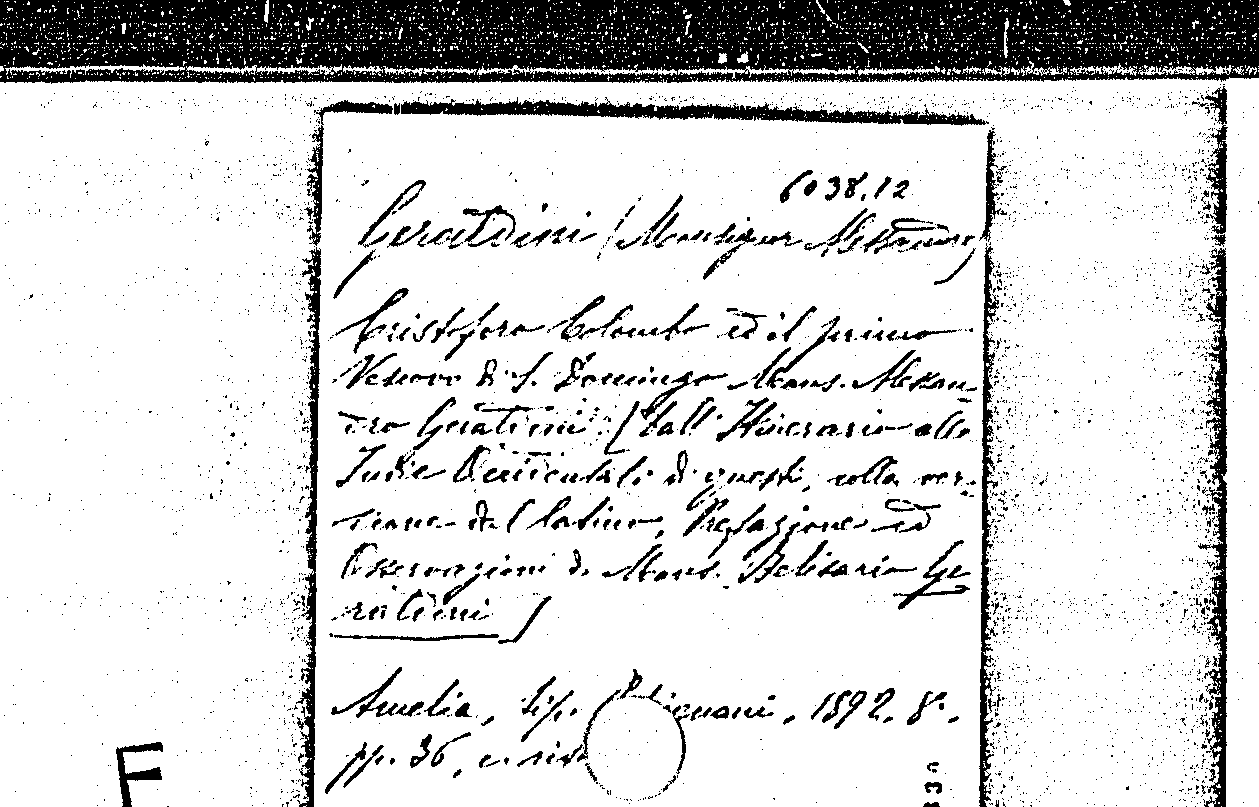 6038.12
Geraldini (Monsignor Alessandro)
Cristoforo Colombo ed il primo
Vescovo di S. Domingo Mons. Alessan-
dro Geraldini [dall' Itinerario alle
Indie Occidentali di questi, colla ver-
sione dal latino, Prefazione ed
Osservazioni di Mons. Belisario Ge
raldini]
Amelia, tip. 1892. 8°.
pp. 36, c.
E